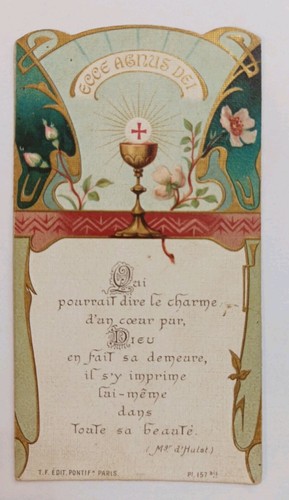 ECCE AGNUS DEI
Qui
pourrait dire le charme
d'un cœur pur,
DIEU
en fait sa demeure,
il s'y imprime
lui-même
dans
toute sa beauté.
(Mgr d'Hulst)
T. F. ÉDIT. PONTIFx PARIS. Pl. 157 bis